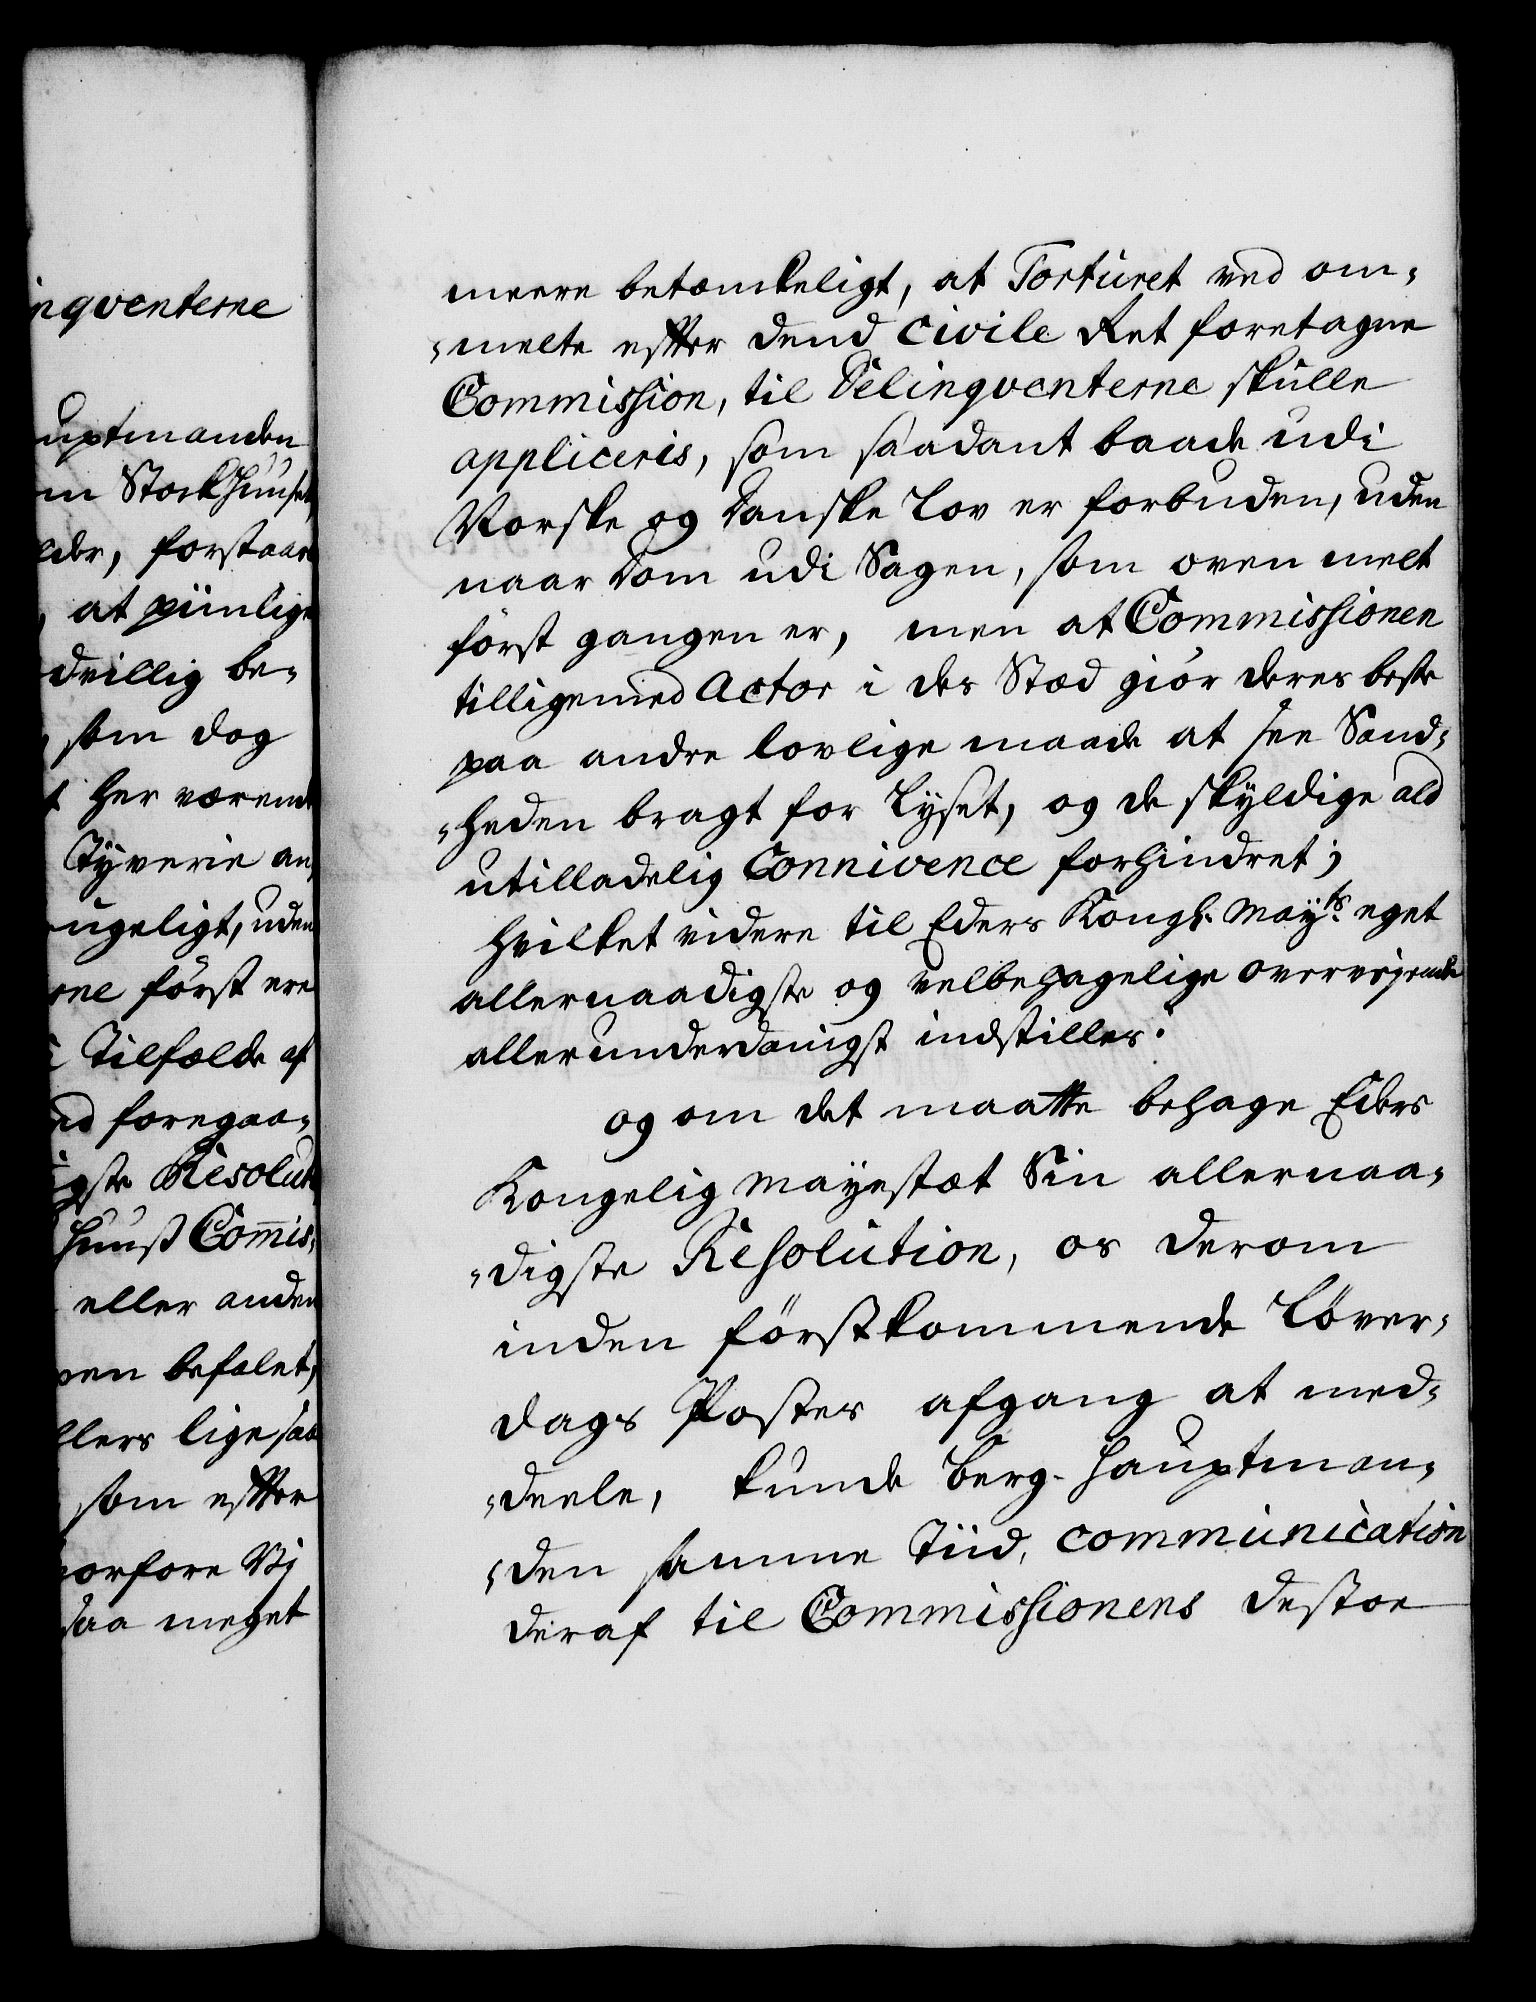 nqventerne
uptmanden
m Stockhuuset,
eder, forstaar
, at piinlige
dvillig be-
, som dog
t her værende
Tyverie an,
ugeligt, uden
rne först ere
i Tilfælde af
nd foregaa-
igste Resolut
huuss Com̄is,
eller anden
ven befalet,
llers lige saa
som efter
vorfore Vi
saa meget
meere betænkeligt, at Torturet ved om-
melte efter dend Civile Ret foretagne
Commission, til Delinqventerne skulle
appliceris, som saadant baade udi
Norske og Danske Lov er forbuden, uden
naar Dom udi Sagen, som oven melt
först gangen er, men at Commissionen
tilligemed Actor i des Stæd giör deres beste
paa andre lovlige maade at see Sand-
heden bragt for Lyset, og de skyldige ald
utilladelig Connivence forhindret;
hvilket videre til Eders Kongl. Mayts. eget
allernaadigste og velbehagelige overvejende
allerunderdanigst indstilles.
og om det maatte behage Eders
Kongelig Mayestæt Sin allernaa-
digste Resolution, os derom
inden förstkommende Löver-
dags Postes afgang at med-
deele, kunde Berg-Hauptman-
den samme Tiid, communication
deraf til Commissionens destoe